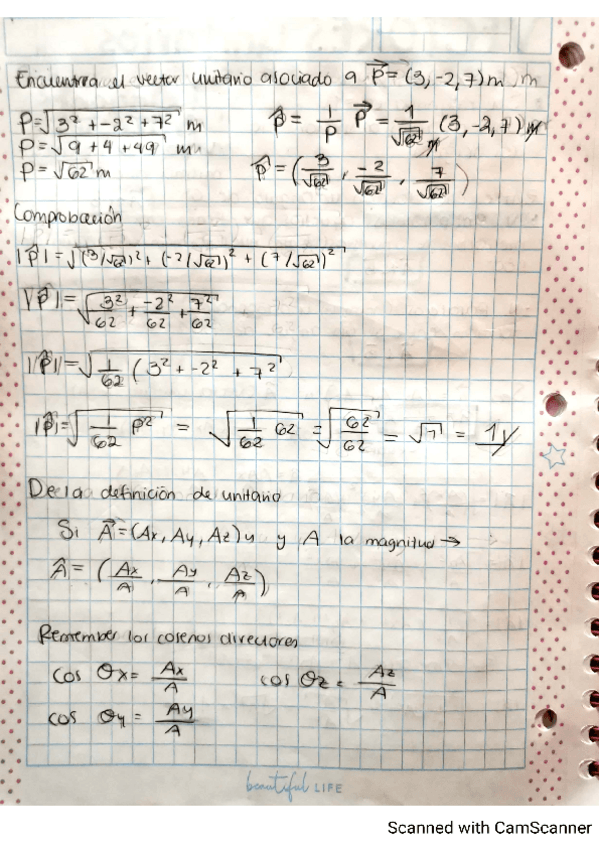 Encuentra el vector unitario asociado a P⃗ = (3, -2, 7) m m
P = √(3² + -2² + 7²) m
P̂ = 1/P P⃗ = 1/√62 m (3, -2, 7) m
P = √(9 + 4 + 49) m
P = √62 m
P̂ = (3/√62, -2/√62, 7/√62)
Comprobación
|P̂| = √((3/√62)² + (-2/√62)² + (7/√62)²)
|P̂| = √(3²/62 + -2²/62 + 7²/62)
|P̂| = √(1/62 (3² + -2² + 7²))
|P̂| = √(1/62 P²) = √(1/62 62) = √(62/62) = √1 = 1
De la definición de unitario
Si A⃗ = (Ax, Ay, Az) u y A la magnitud →
Â = (Ax/A, Ay/A, Az/A)
Remember los cosenos directores
cos θx = Ax/A cos θz = Az/A
cos θy = Ay/A
beautiful LIFE
Scanned with CamScanner